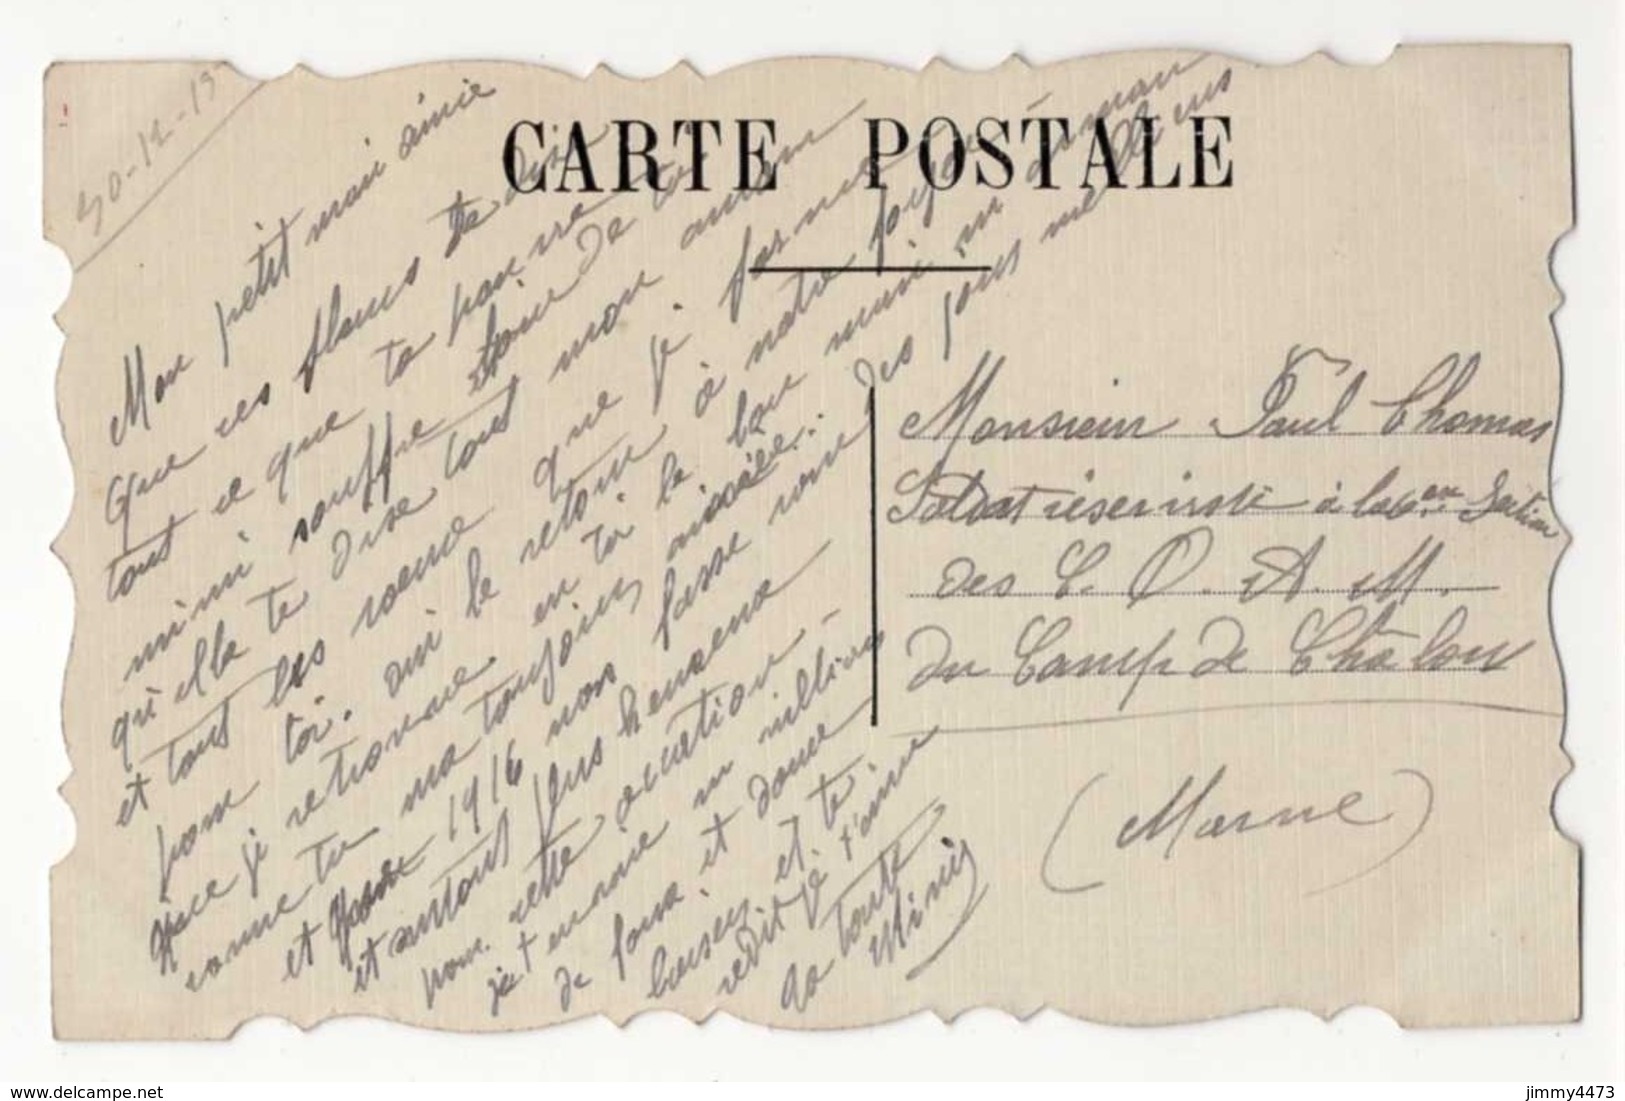 30-12-15
CARTE POSTALE
Mon petit mari aimé
Que ces fleurs te dise
tout ce que ta pauvre
mimi souffre loin de toi
qu'elle te dise tout mon amour
et tous les voeux que je formes
pour toi. oui le retour à notre foyer
que je retrouve en toi le bon mimi un maman
comme tu ma toujours
et que 1916 nous fasse des jours meilleurs
et surtout plus heureux
pour cette
je t'envoie un millions
de doux et
baisers et te
redit je t'aime
Ta toute
Mimi
Monsieur Paul Thomas
Soldat réserviste à la 6em Section
des C. O. A. M.
du Camp de Châlons
(Marne)
https://www.delcampe.net
jimmy4473